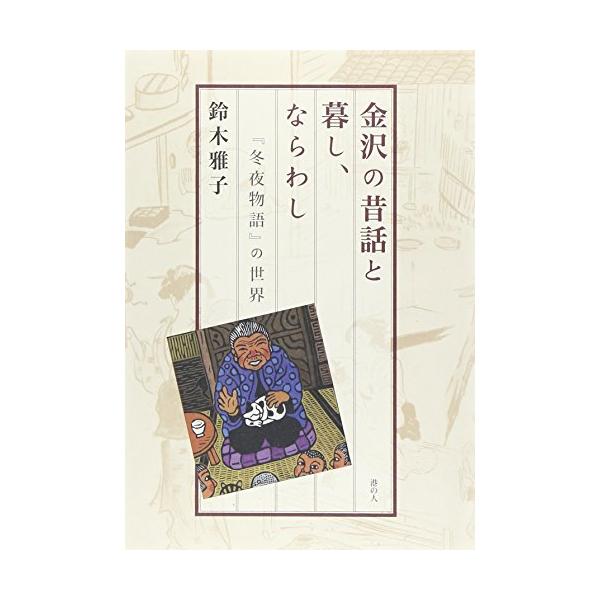 金沢の昔話と
暮し、
ならわし
『冬夜物語』の世界
鈴木雅子
港の人